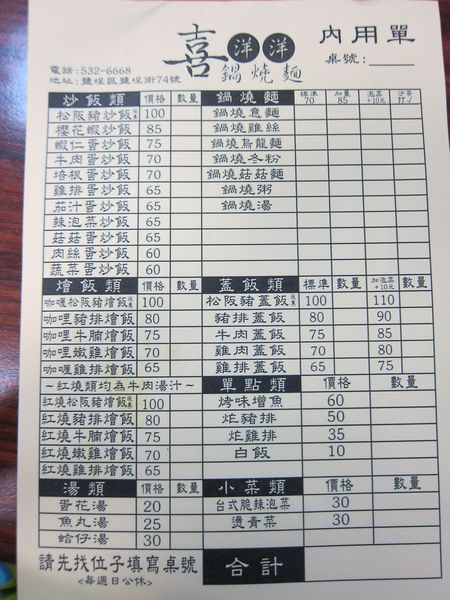 喜洋洋鍋燒麵
內用單
桌號：
電話：532-6668
地址：鹽埕區鹽埕街74號
炒飯類 價格 數量
松阪豬炒飯 100
櫻花蝦炒飯 85
蝦仁蛋炒飯 75
牛肉蛋炒飯 70
培根蛋炒飯 70
雞排蛋炒飯 65
茄汁蛋炒飯 65
辣泡菜炒飯 65
菇菇蛋炒飯 65
肉絲蛋炒飯 60
蔬菜蛋炒飯 60
鍋燒麵 標準70 加量85 泡菜+10元 沙茶打✓
鍋燒意麵
鍋燒雞絲
鍋燒烏龍麵
鍋燒冬粉
鍋燒菇菇麵
鍋燒粥
鍋燒湯
燴飯類 價格 數量
咖喱松阪豬燴飯 100
咖哩豬排燴飯 80
咖哩牛腩燴飯 75
咖哩嫩雞燴飯 70
咖哩雞排燴飯 65
～紅燒類均為牛肉湯汁～
紅燒松阪豬燴飯 100
紅燒豬排燴飯 80
紅燒牛腩燴飯 75
紅燒嫩雞燴飯 70
紅燒雞排燴飯 65
蓋飯類 標準 數量 加泡菜+10元 數量
松阪豬蓋飯 100 110
豬排蓋飯 80 90
牛肉蓋飯 75 85
雞肉蓋飯 70 80
雞排蓋飯 65 75
單點類 價格 數量
烤味增魚 60
炸豬排 50
炸雞排 35
白飯 10
湯類 價格 數量
蛋花湯 20
魚丸湯 25
蛤仔湯 30
小菜類 價格 數量
台式脆辣泡菜 30
燙青菜 30
請先找位子填寫桌號
<每週日公休>
合計